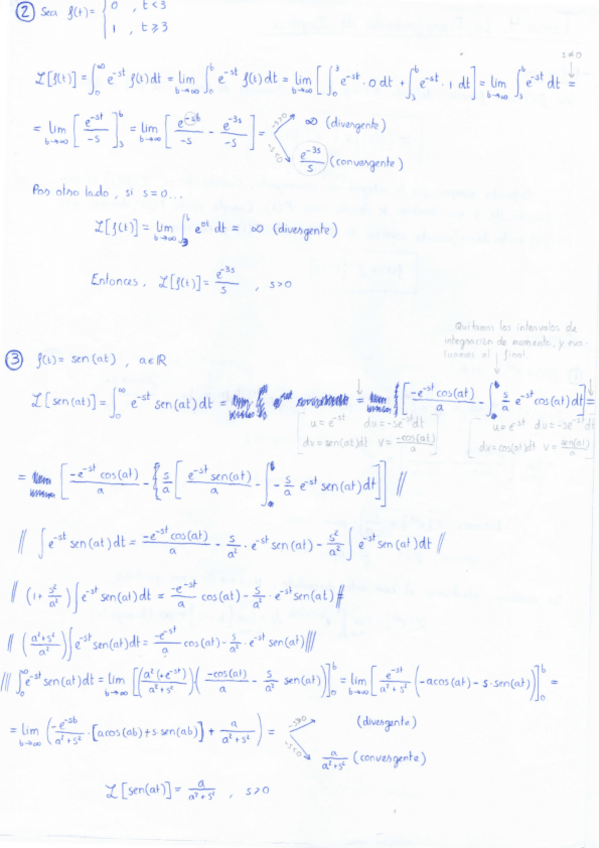 ② Sea f(t) = { 0 , t<3
1 , t≥3
s≠0
L[f(t)] = ∫₀^∞ e^-st f(t) dt = lim b→∞ ∫₀^b e^-st f(t) dt = lim b→∞ [ ∫₀^3 e^-st · 0 dt + ∫₃^b e^-st · 1 dt ] = lim b→∞ ∫₃^b e^-st dt =
= lim b→∞ [ e^-st / -s ]₃^b = lim b→∞ [ e^-sb / -s - e^-3s / -s ] = -s>0 ∞ (divergente)
-s<0 e^-3s / s (convergente)
Por otro lado, si s=0...
L[f(t)] = lim b→∞ ∫₃^b e^0t dt = ∞ (divergente)
Entonces, L[f(t)] = e^-3s / s , s>0
Quitamos los intervalos de
integración de momento, y eva-
luamos al final
③ f(t) = sen(at) , a∈ℝ
L[sen(at)] = ∫₀^∞ e^-st sen(at) dt = = [ -e^-st cos(at) / a - ∫ s/a e^-st cos(at) dt ] =
[ u = e^-st du = -se^-st dt
dv = sen(at) dt v = -cos(at) / a ]
[ u = e^-st du = -se^-st dt
dv = cos(at) dt v = sen(at) / a ]
= [ -e^-st cos(at) / a - { s/a [ e^-st sen(at) / a - ∫ - s/a e^-st sen(at) dt ] ] //
// ∫ e^-st sen(at) dt = -e^-st cos(at) / a - s/a² · e^-st sen(at) - s²/a² ∫ e^-st sen(at) dt //
// (1 + s²/a²) ∫ e^-st sen(at) dt = -e^-st / a cos(at) - s/a² · e^-st sen(at) //
// (a²+s² / a²) ∫ e^-st sen(at) dt = -e^-st / a cos(at) - s/a² · e^-st sen(at) ///
/// ∫₀^∞ e^-st sen(at) dt = lim b→∞ [ (a² (+e^-st) / a²+s²) ( -cos(at) / a - s/a² sen(at) ) ]₀^b = lim b→∞ [ e^-st / a²+s² (-acos(at) - s·sen(at)) ]₀^b =
= lim b→∞ ( -e^-sb / a²+s² · [acos(ab) + s·sen(ab)] + a / a²+s² ) = -s>0 (divergente)
-s<0 a / a²+s² (convergente)
L[sen(at)] = a / a²+s² , s>0